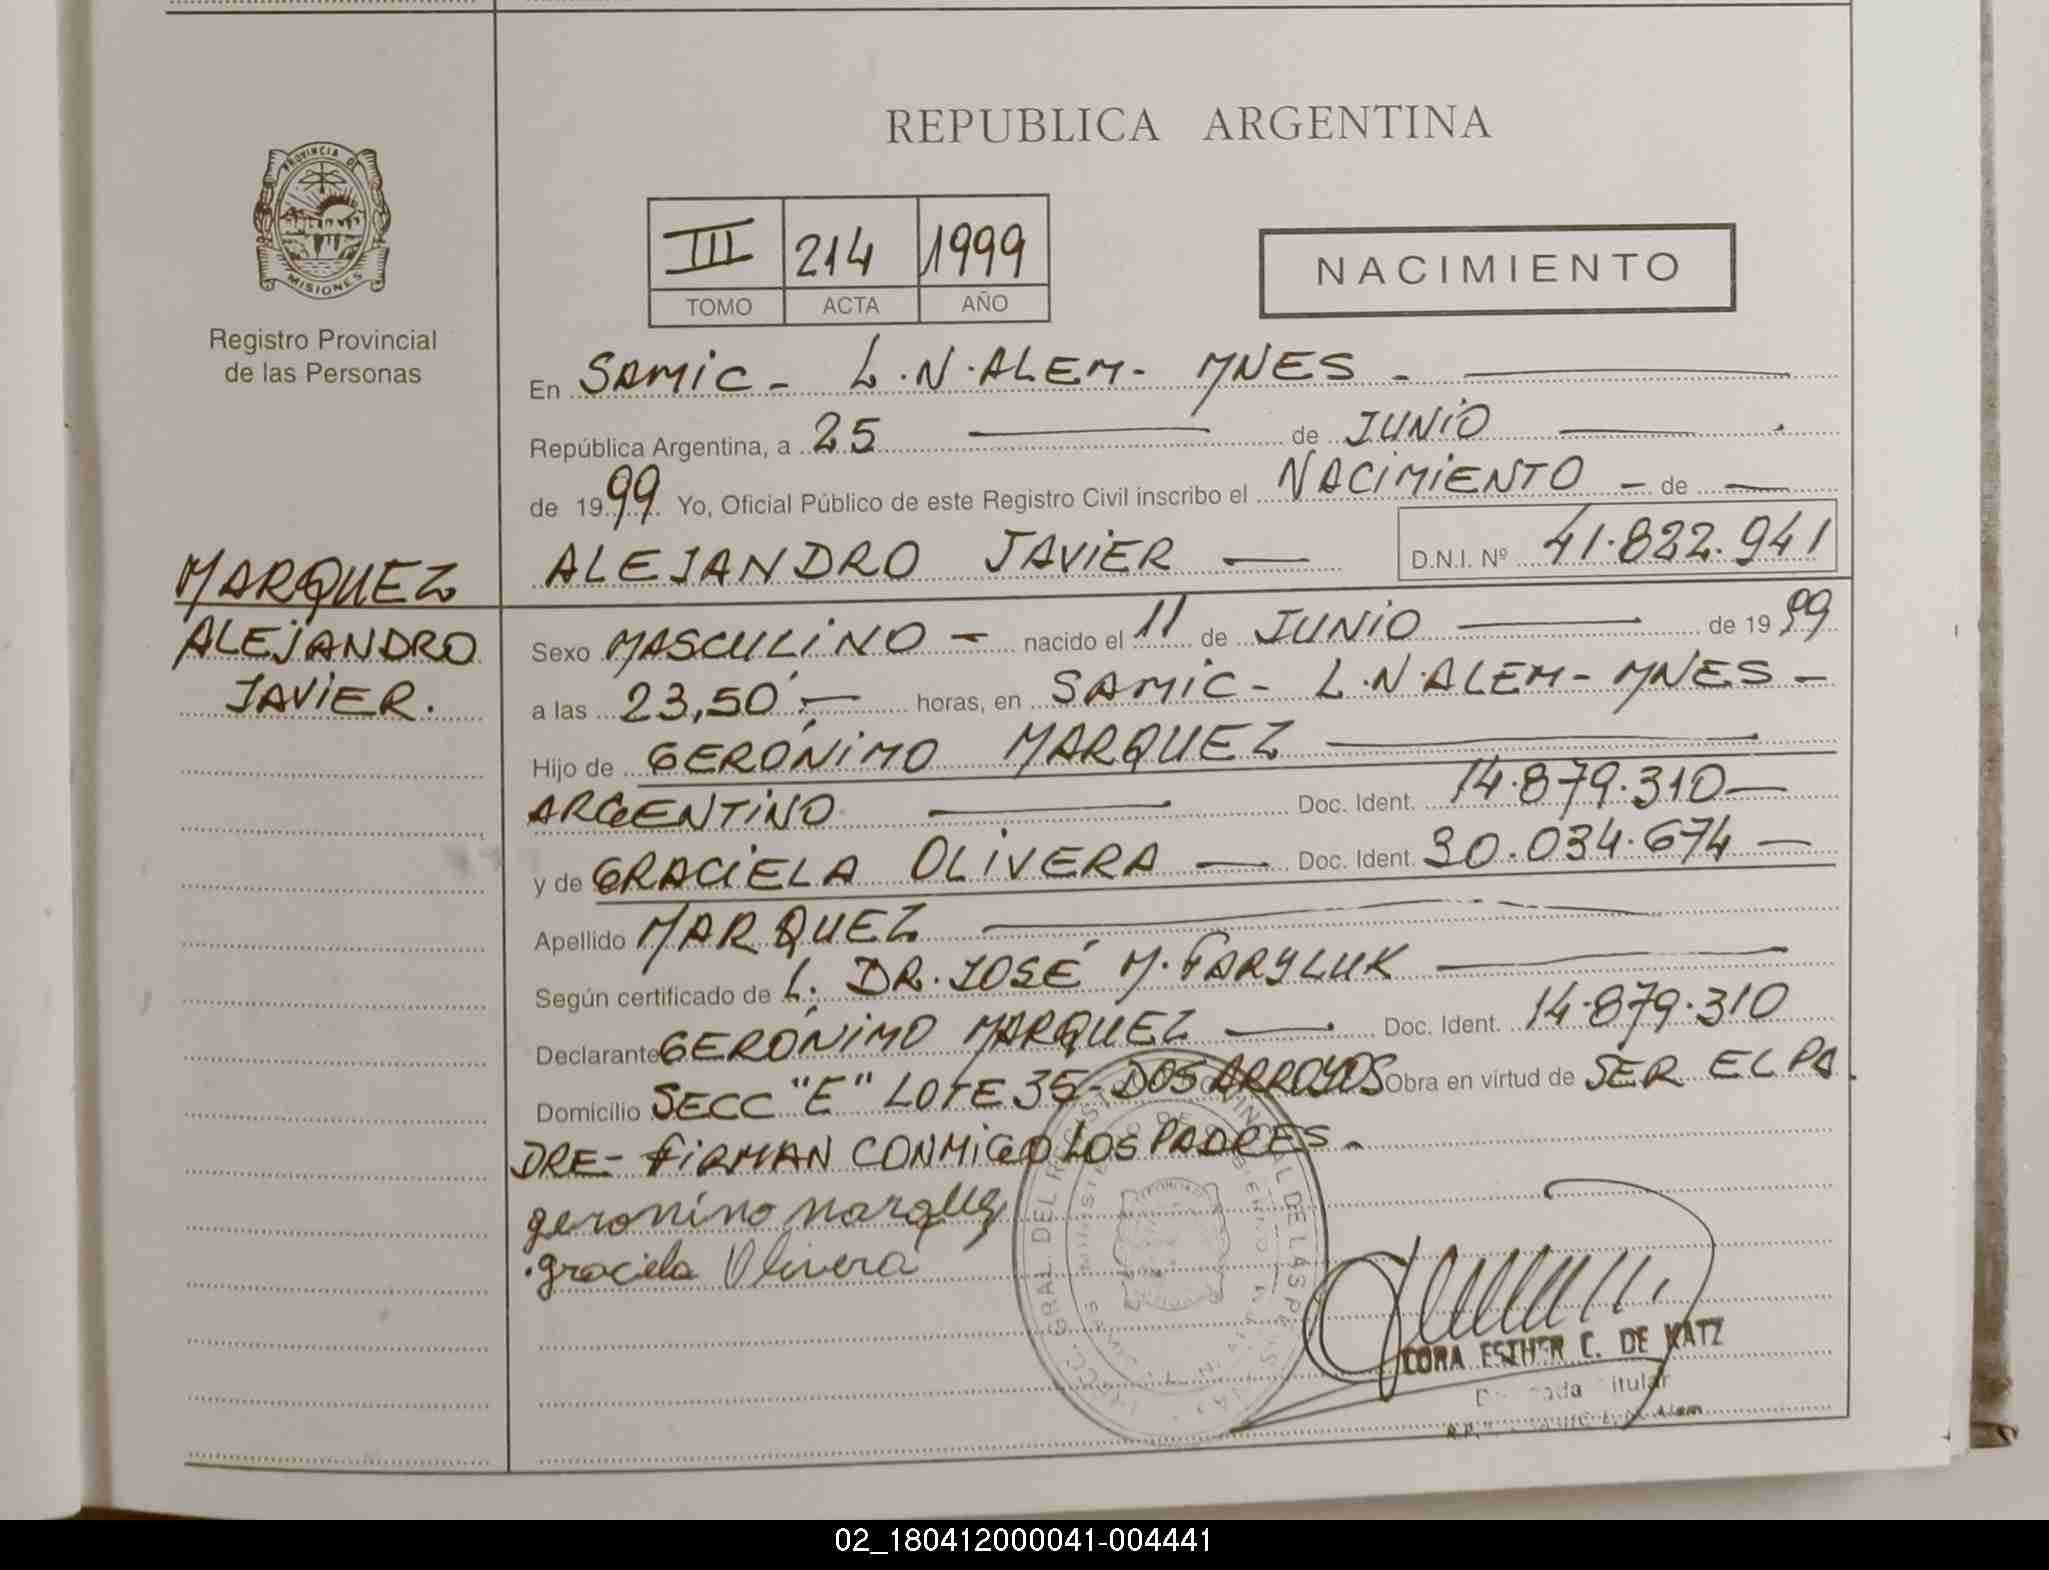 REPUBLICA ARGENTINA
PROVINCIA DE
MISIONES
Registro Provincial
de las Personas
III 214 1999
TOMO ACTA AÑO
NACIMIENTO
En SAMIC - L.N.ALEM - MNES -
República Argentina, a 25 de JUNIO
de 1999 Yo, Oficial Público de este Registro Civil inscribo el NACIMIENTO - de
ALEJANDRO JAVIER - D.N.I. Nº 41.822.941
MARQUEZ
ALEJANDRO
JAVIER.
Sexo MASCULINO - nacido el 11 de JUNIO de 1999
a las 23,50' - horas, en SAMIC - L.N.ALEM - MNES -
Hijo de GERÓNIMO MARQUEZ
ARGENTINO Doc. Ident. 14.879.310 -
y de GRACIELA OLIVERA - Doc. Ident. 30.034.674 -
Apellido MARQUEZ
Según certificado de L. DR. JOSÉ M. FARYLUK
Declarante GERÓNIMO MARQUEZ - Doc. Ident. 14.879.310
Domicilio SECC "E" LOTE 35 - DOS ARROYOS Obra en virtud de SER EL PA
DRE - FIRMAN CONMIGO LOS PADRES -
geronino marquez
graciela Olivera
CORA ESTHER C. DE KATZ
02_180412000041-004441